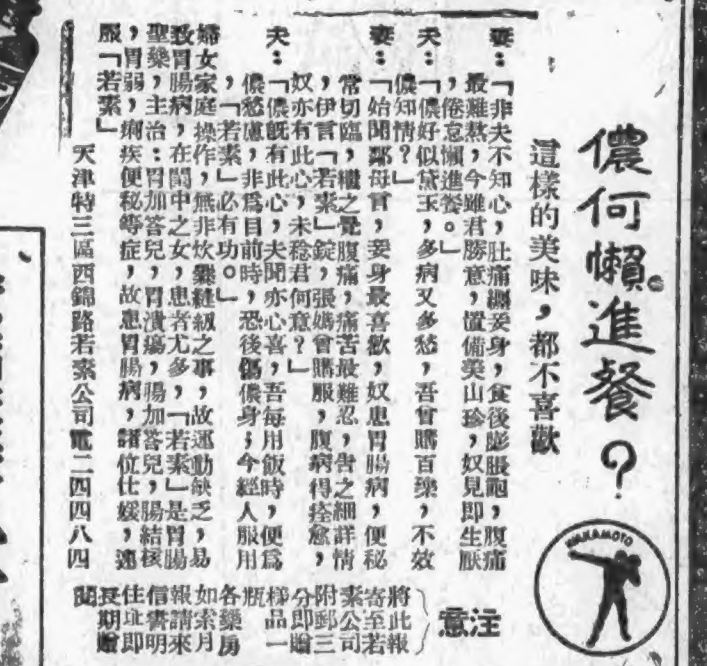 儂何懶進餐？
這樣的美味，都不喜歡
妻：「非夫不知心，肚痛纏妾身，食後膨脹
，腹痛
最難熬，今雖君勝意，置備美山珍，奴見即生厭
，倦怠懶進餐。」
夫：「儂好似黛玉，多病又多愁，吾曾購百藥，不效
儂知情？」
妻：「始聞鄰母言，妾身最喜歡，奴患胃腸病，便秘
常切臨，繼之覺腹痛，痛苦最難忍，告之細詳情
，伊言「若素」錠，張媽曾購服，腹病得痊愈，
奴亦有此心，未稔君何意？」
夫：「儂既有此心，夫聞亦心喜，吾每用飯時，便爲
儂愁慮，非爲目前時，恐後傷儂身；今經人服用
，「若素」必有功。」
婦女家庭操作，無非炊爨縫紉之事，故運動缺乏，易
致胃腸病，在閨中之女，患者尤多，「若素」是胃腸
聖藥，主治：胃加答兒，胃潰瘍，腸加答兒，腸結核
，胃弱，痢疾便秘等症，故患胃腸病，諸位仕媛，速
服「若素」
天津特三區西錦路若素公司電二四四八四
WAKAMOTO
注意
將此報
寄至若
素公司
附郵三
分即贈
樣品一
瓶
各藥房
如索月
報請來
信書明
住址即
長期贈
閱